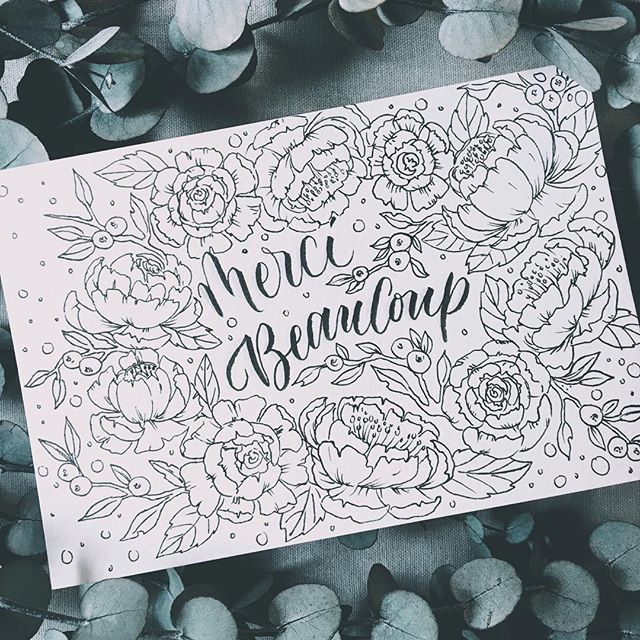 Merci
Beaucoup